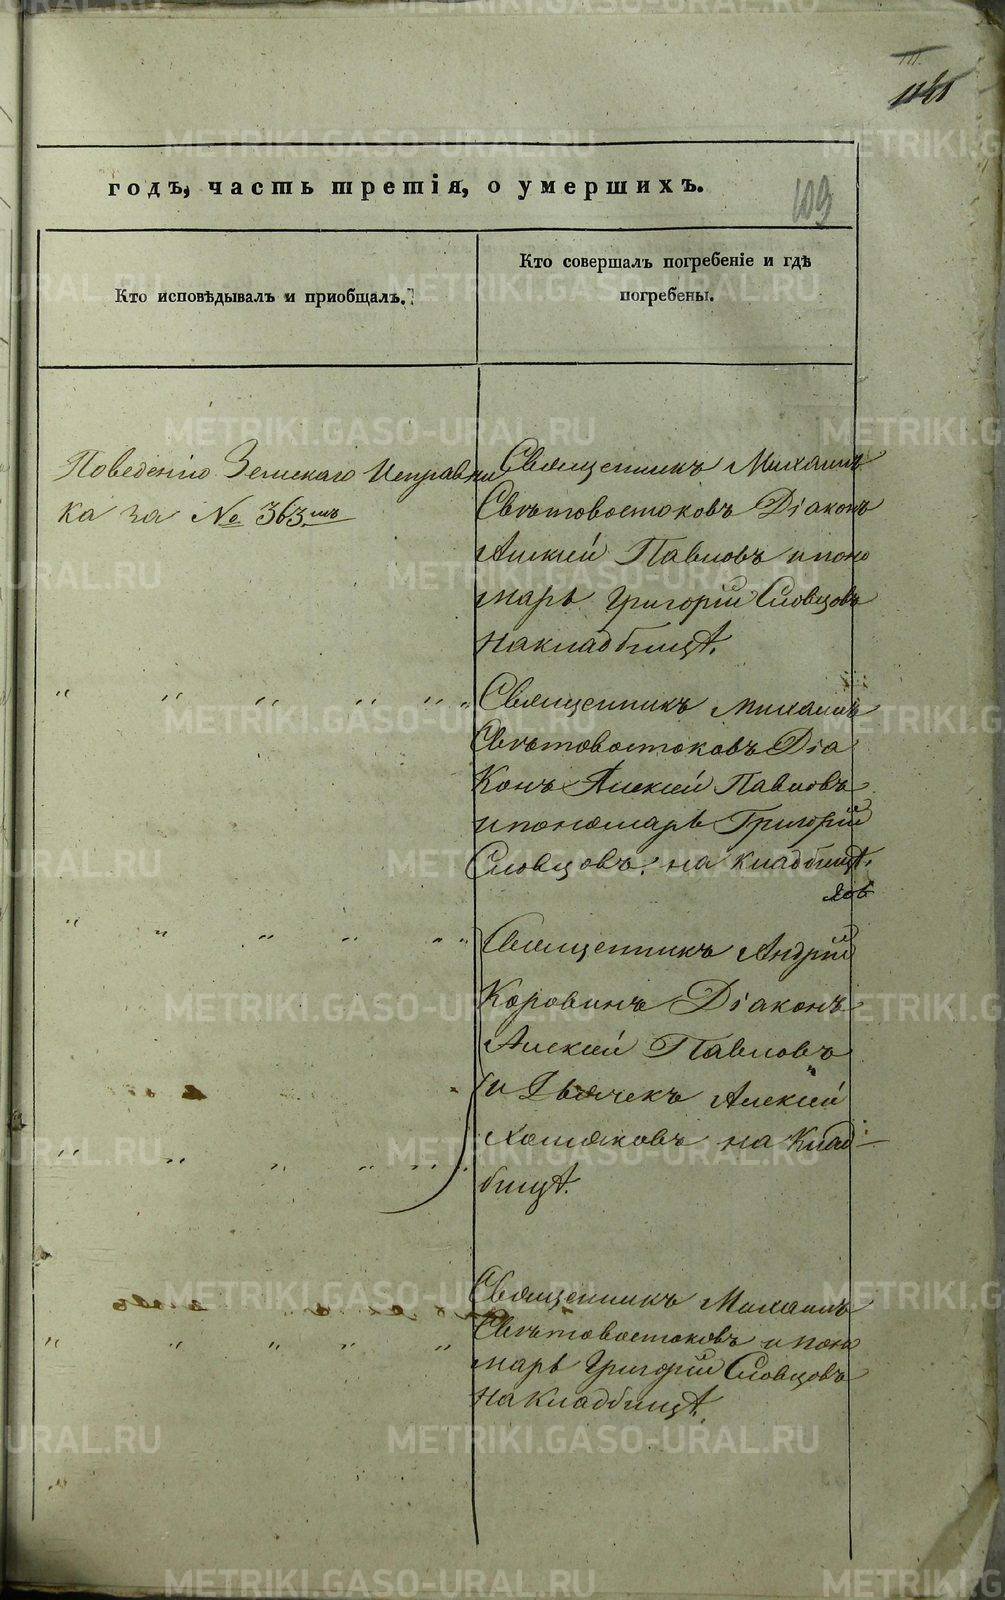 109
годъ, часть третія, о умершихъ.
Кто исповѣдывалъ и приобщалъ.
Кто совершалъ погребеніе и гдѣ
погребены.
Поведенію Земскаго Исправни
ка за № 363.мъ
Священникъ Михаилъ
Свѣтовостоковъ Діаконъ
Алексѣй Павловъ и поно
марь Григорій Словцовъ
на кладбищѣ.
" " " " " "
Священникъ Михаилъ
Свѣтовостоковъ Діа
конъ Алексѣй Павловъ
и пономарь Григорій
Словцовъ. на кладбищѣ.
" " " " " "
Священникъ Андрей
Коровинъ Діаконъ
Алексѣй Павловъ
и Дьячекъ Алексѣй
Хомяковъ на клад-
бищѣ.
" " " " " "
Священникъ Михаилъ
Свѣтовостоковъ и поно
марь Григорій Словцовъ
на кладбищѣ.
" " " " "
METRIKI.GASO-URAL.RU